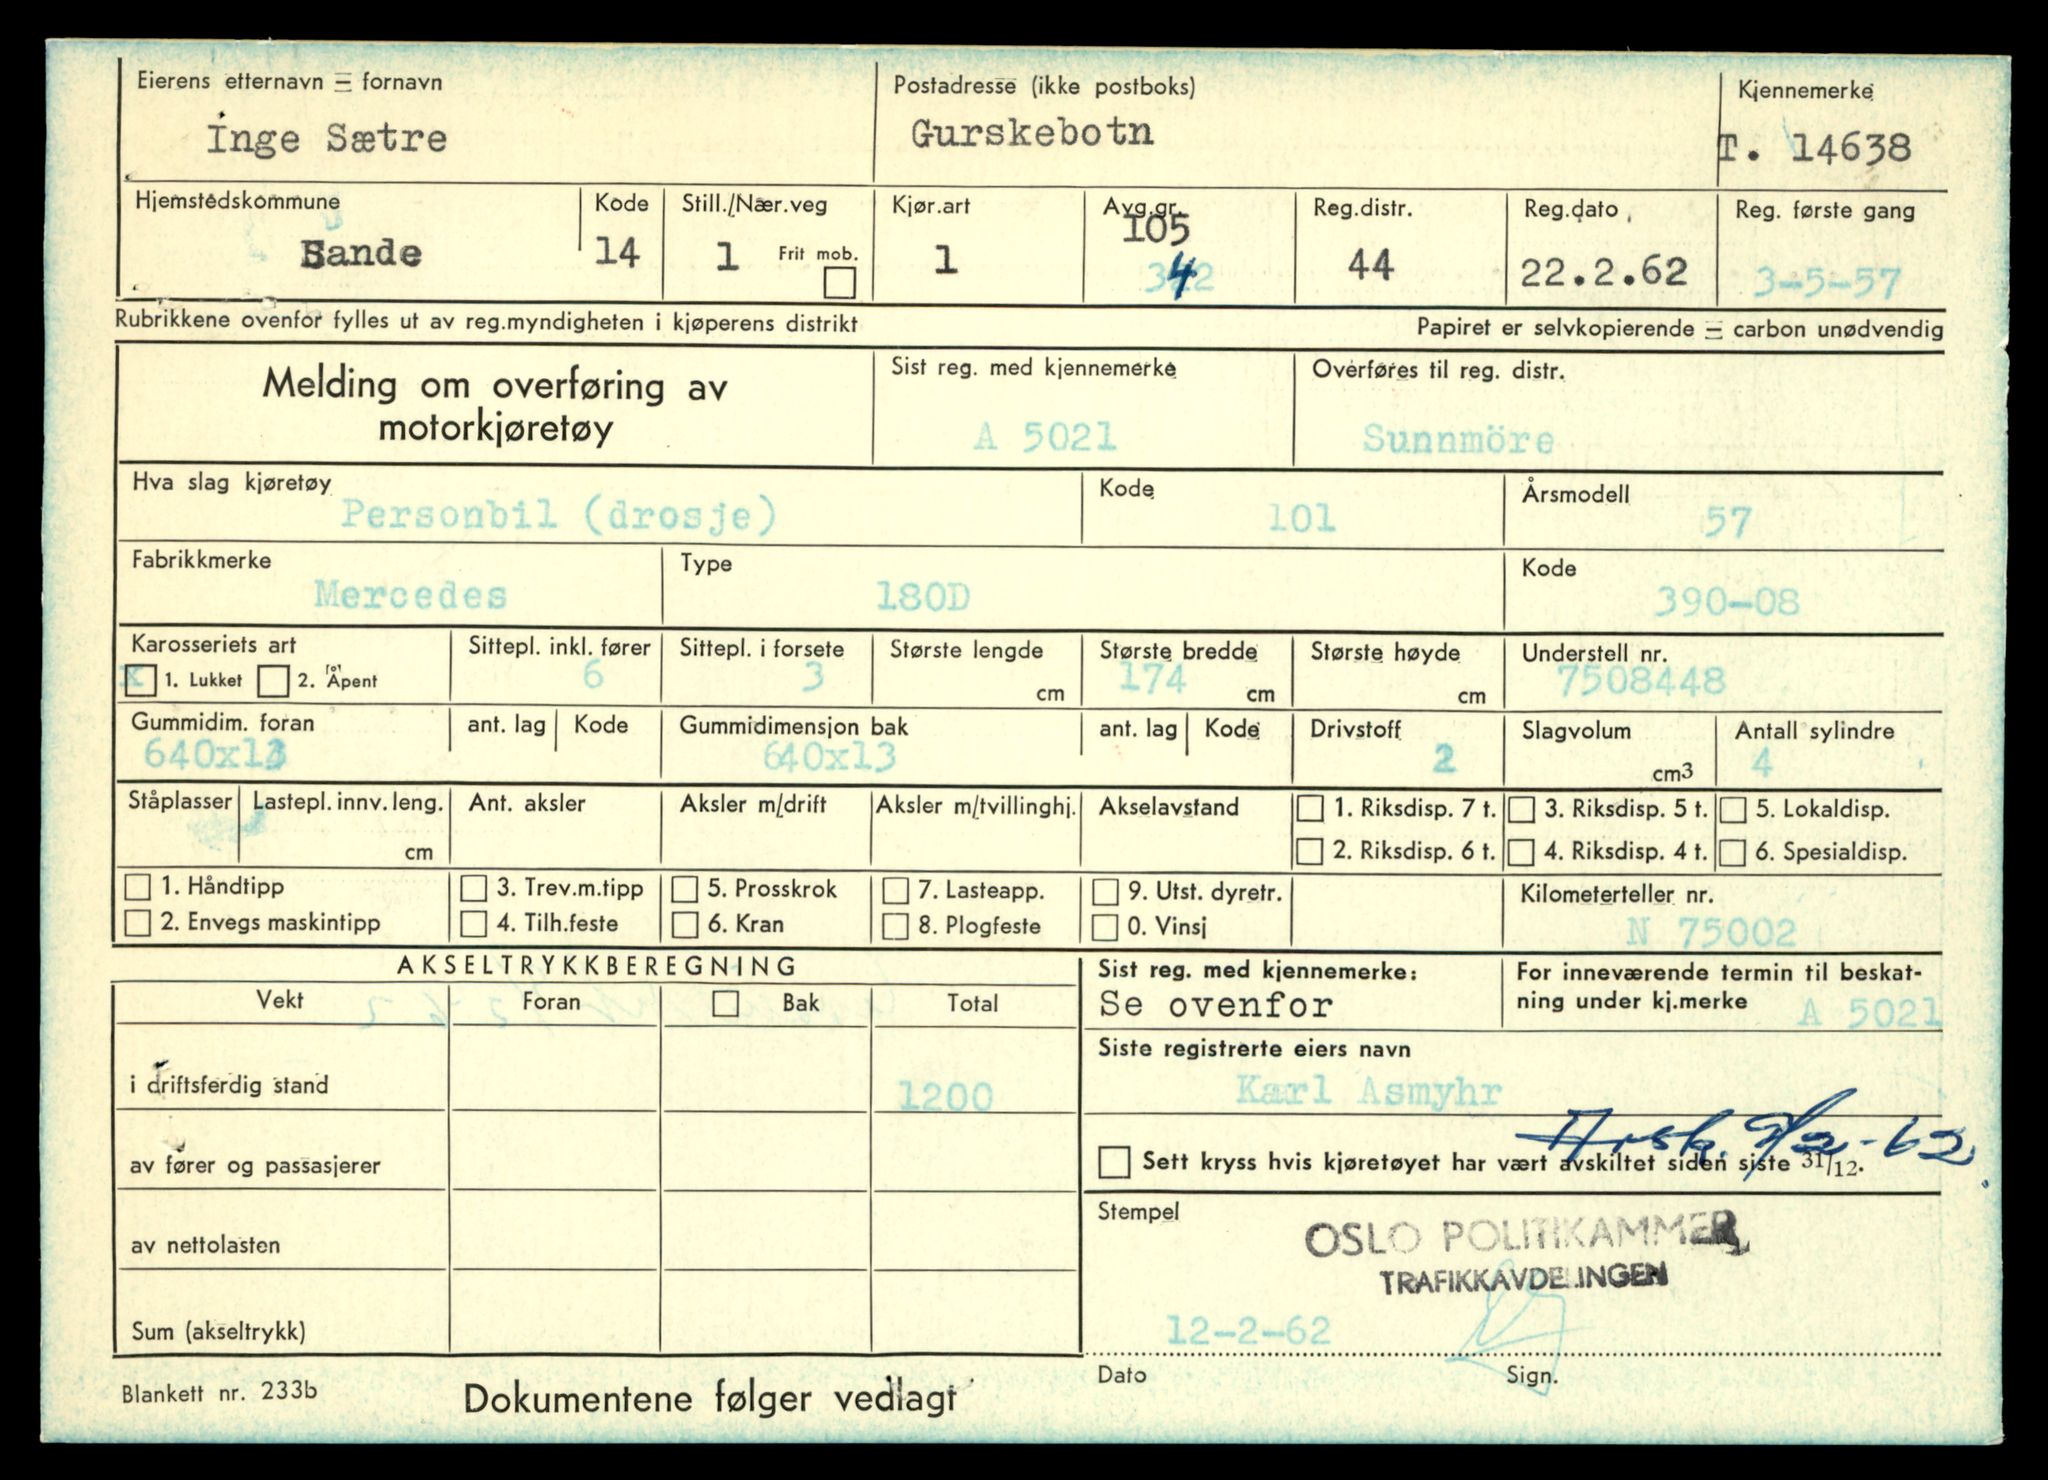 Eierens etternavn — fornavn
Inge Sætre
Postadresse (ikke postboks)
Gurskebotn
Kjennemerke
T. 14638
Hjemstedskommune
Sande
Kode
14
Still./Nær.veg
1
Frit mob.
Kjør.art
1
Avg.gr.
105
4
Reg.distr.
44
Reg.dato
22.2.62
Reg. første gang
3-5-57
Rubrikkene ovenfor fylles ut av reg.myndigheten i kjøperens distrikt
Papiret er selvkopierende — carbon unødvendig
Melding om overføring av
motorkjøretøy
Sist reg. med kjennemerke
A 5021
Overføres til reg. distr.
Sunnmöre
Hva slag kjøretøy
Personbil (drosje)
Kode
101
Årsmodell
57
Fabrikkmerke
Mercedes
Type
180D
Kode
390-08
Karosseriets art
x 1. Lukket 2. Åpent
Sittepl. inkl. fører
6
Sittepl. i forsete
3
Største lengde
cm
Største bredde
174 cm
Største høyde
cm
Understell nr.
7508448
Gummidim. foran
640x13
ant. lag Kode
Gummidimensjon bak
640x13
ant. lag Kode
Drivstoff
2
Slagvolum
cm3
Antall sylindre
4
Ståplasser
Lastepl. innv. leng.
cm
Ant. aksler
Aksler m/drift
Aksler m/tvillinghj.
Akselavstand
1. Riksdisp. 7 t. 3. Riksdisp. 5 t. 5. Lokaldisp.
2. Riksdisp. 6 t. 4. Riksdisp. 4 t. 6. Spesialdisp.
1. Håndtipp 3. Trev.m.tipp 5. Prosskrok 7. Lasteapp. 9. Utst. dyretr.
2. Envegs maskintipp 4. Tilh.feste 6. Kran 8. Plogfeste 0. Vinsj
Kilometerteller nr.
N 75002
AKSELTRYKKBEREGNING
Vekt Foran Bak Total
i driftsferdig stand 1200
av fører og passasjerer
av nettolasten
Sum (akseltrykk)
Sist reg. med kjennemerke:
Se ovenfor
For inneværende termin til beskat-
ning under kj.merke A 5021
Siste registrerte eiers navn
Karl Asmyhr
Sett kryss hvis kjøretøyet har vært avskiltet siden siste 31/12.
Stempel
OSLO POLITIKAMMER
TRAFIKKAVDELINGEN
12-2-62
Dato Sign.
Blankett nr. 233b
Dokumentene følger vedlagt